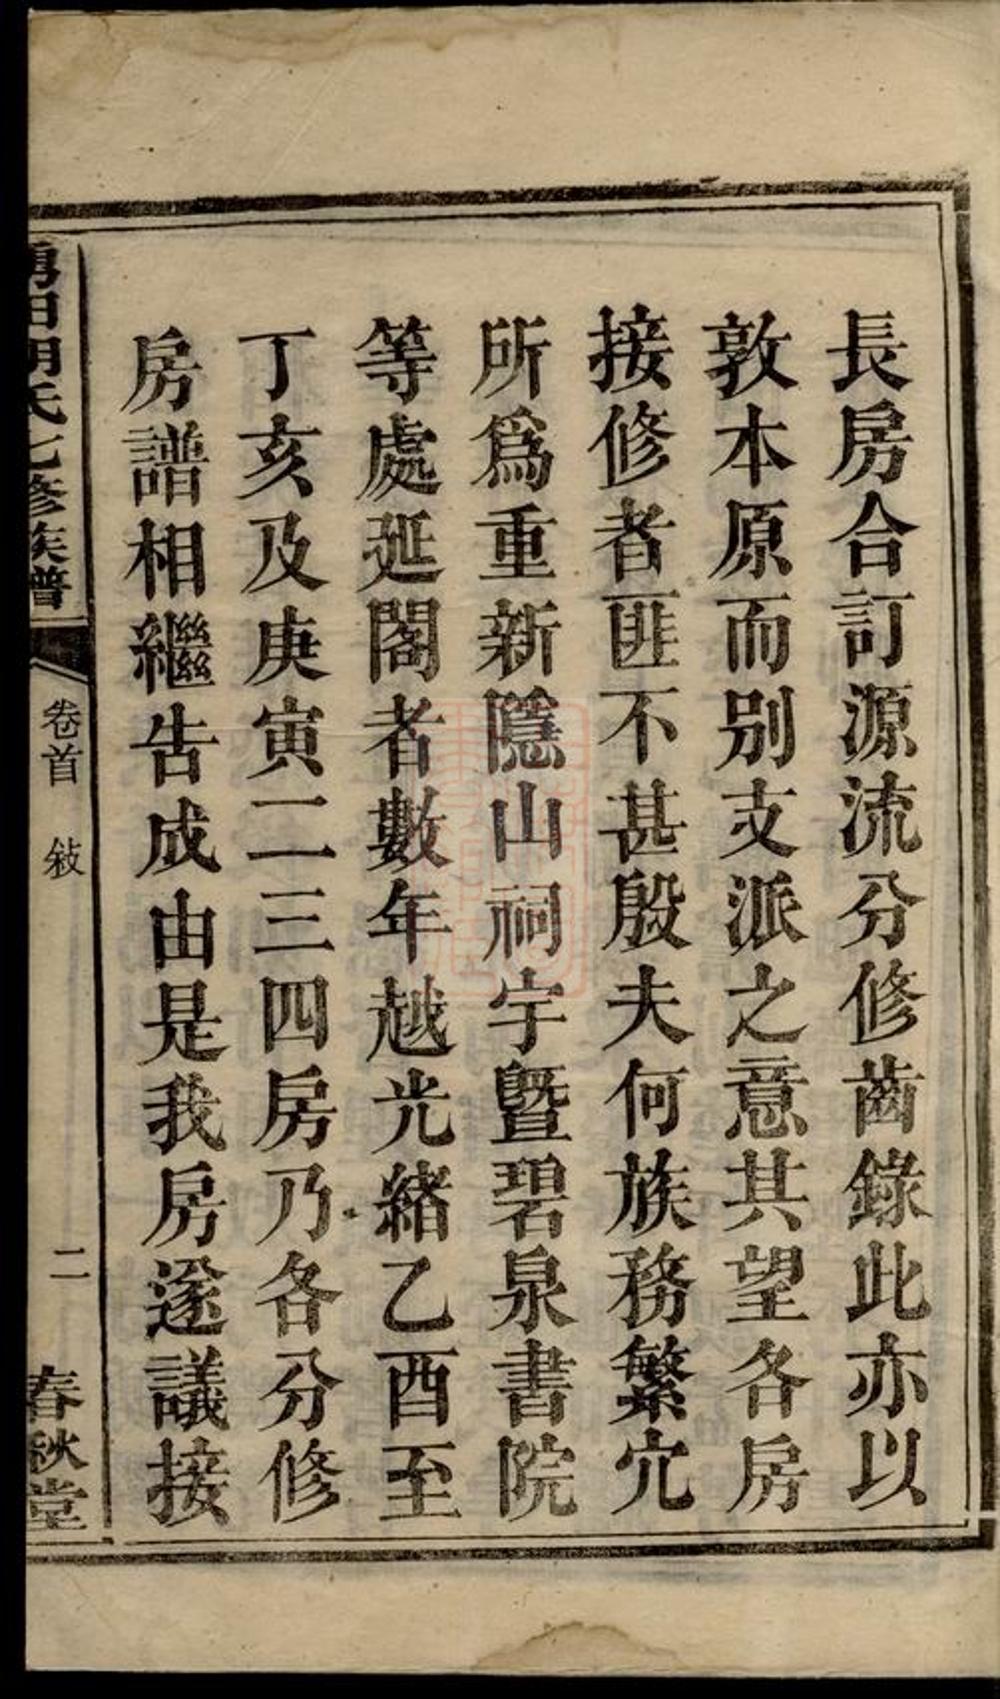 長房合訂源流分修齒錄此亦以
敦本原而別支派之意其望各房
接修者匪不甚殷夫何族務繁冗
所爲重新隱山祠宇暨碧泉書院
等處延閣者數年越光緒乙酉至
丁亥及庚寅二三四房乃各分修
房譜相繼告成由是我房遂議接
田胡氏七修族譜
卷首
敍
二
春秋堂